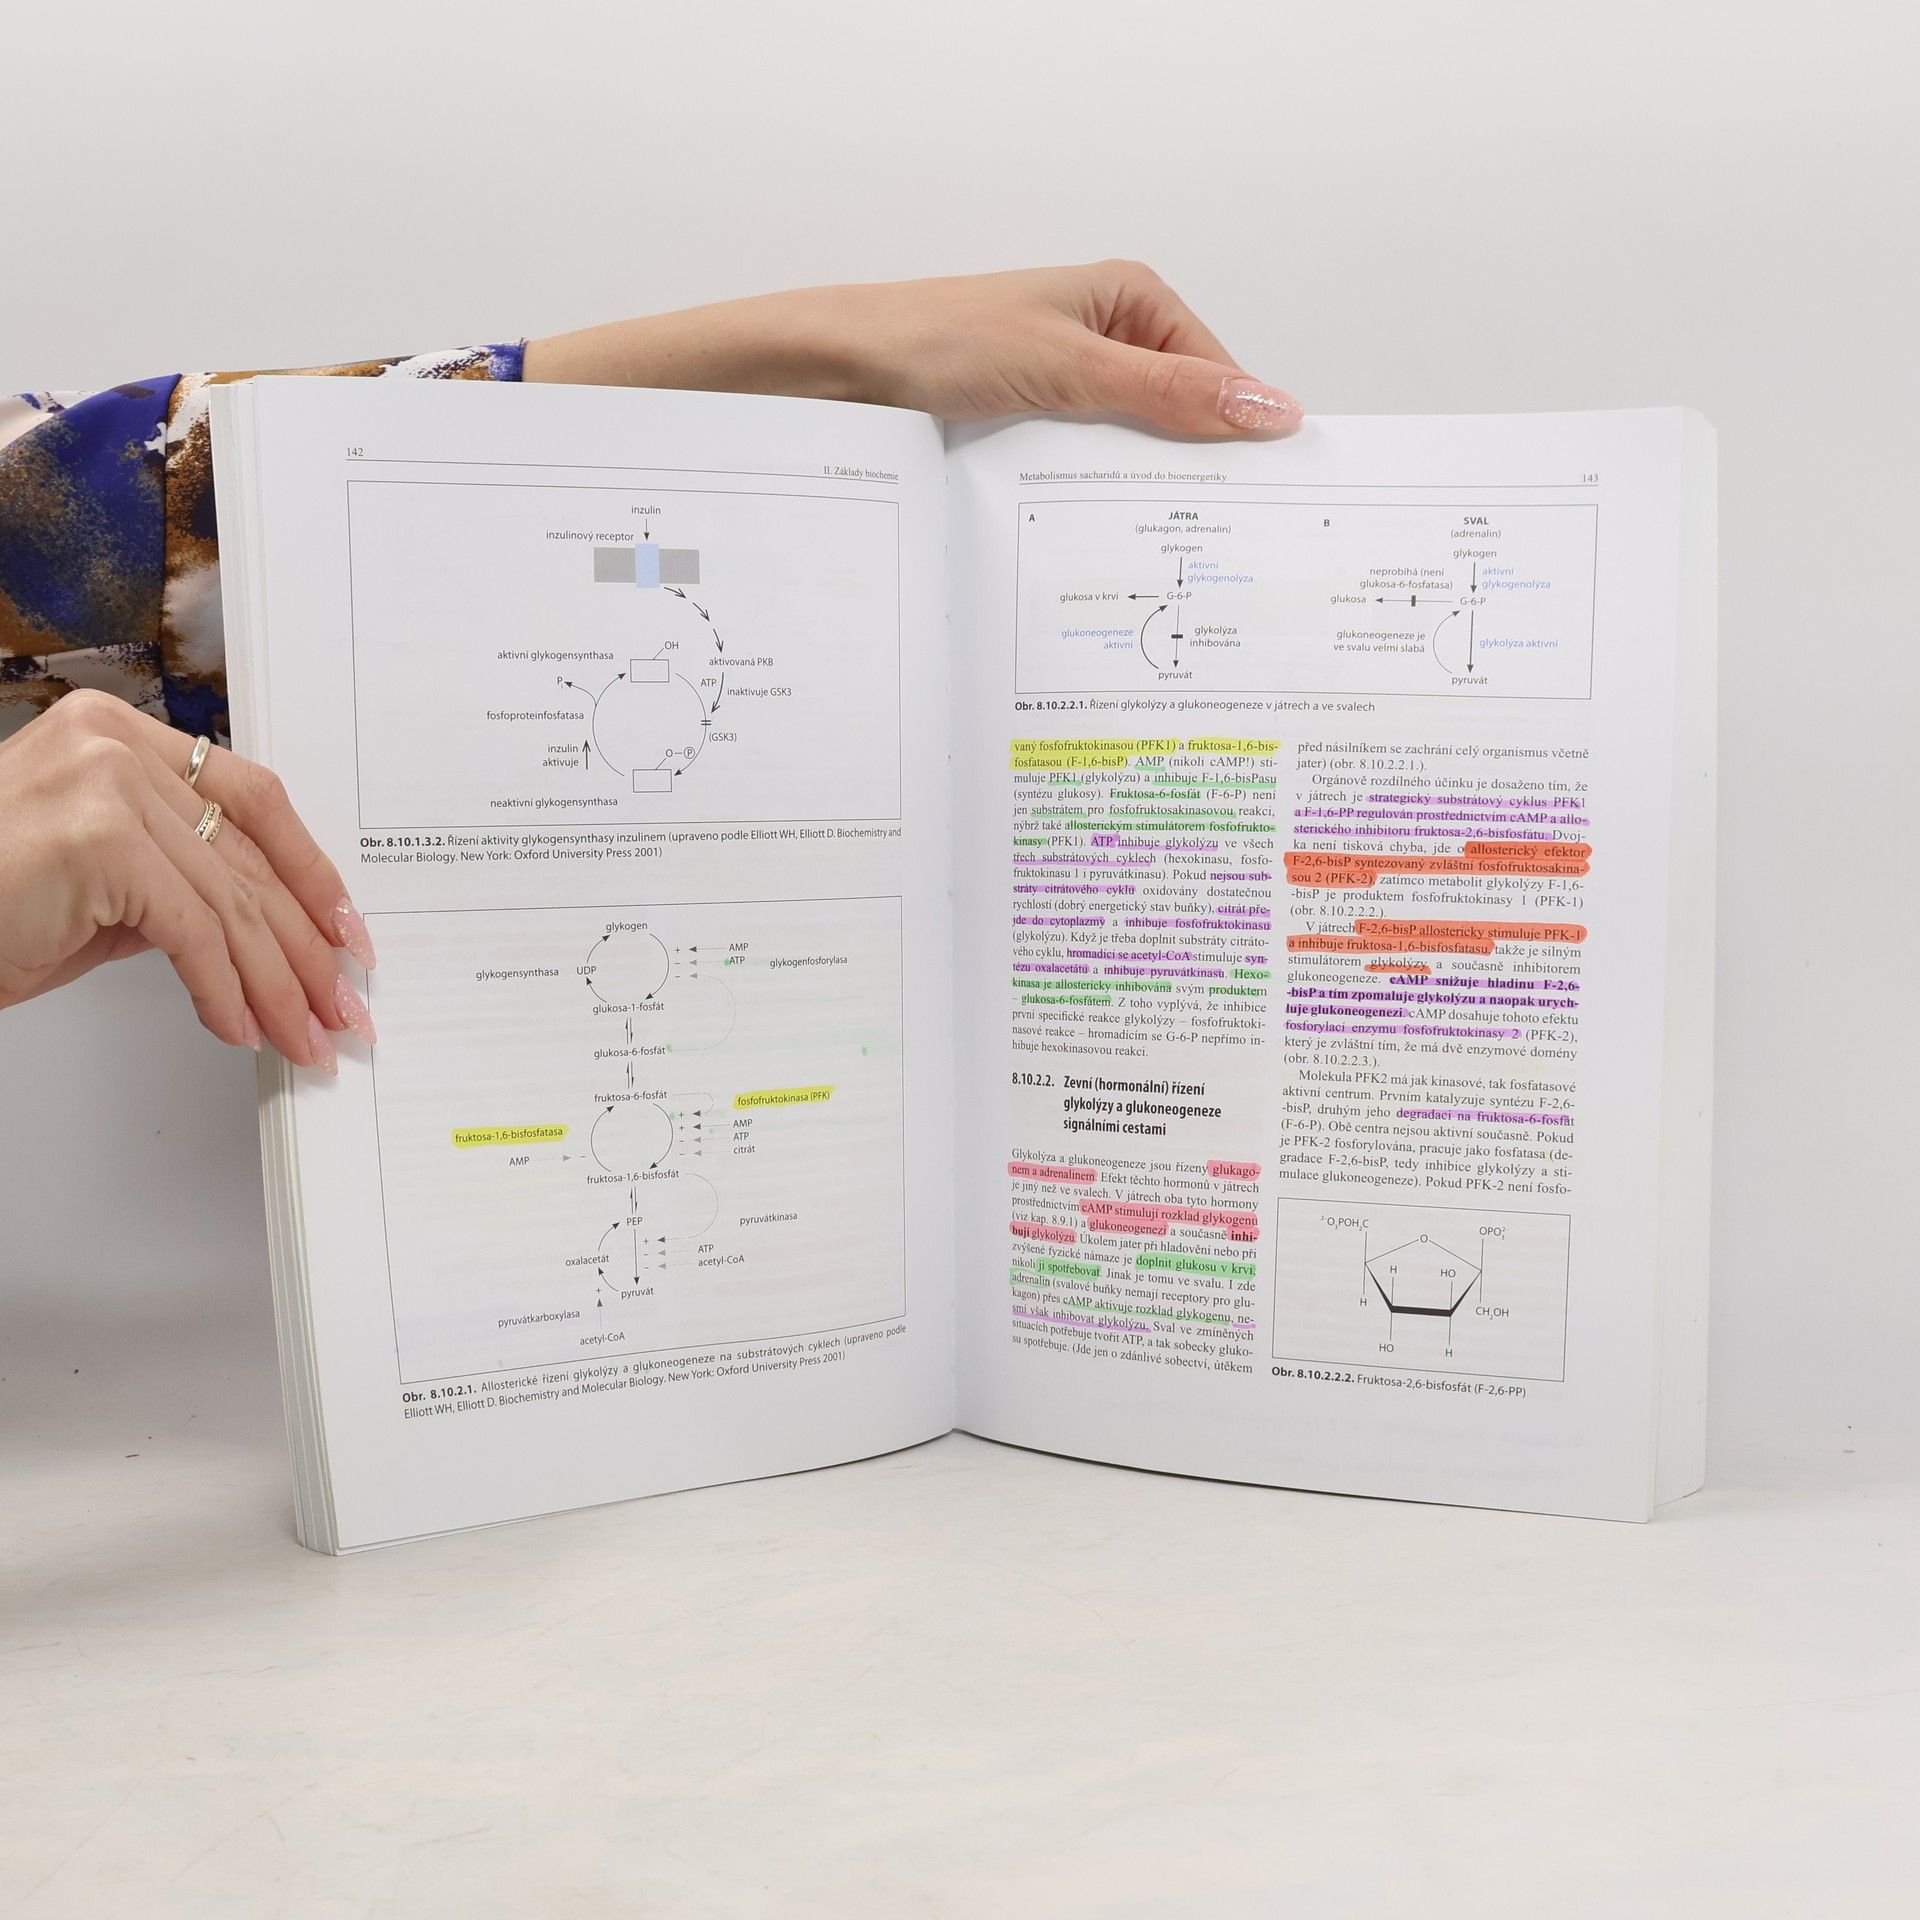 142
II. Základy biochemie
inzulin
inzulinový receptor
OH
aktivní glykogensynthasa
aktivovaná PKB
Pi
ATP
inaktivuje GSK3
fosfoproteinfosfatasa
(GSK3)
inzulin
aktivuje
O–P
neaktivní glykogensynthasa
Obr. 8.10.1.3.2. Řízení aktivity glykogensynthasy inzulinem (upraveno podle Elliott WH, Elliott D. Biochemistry and
Molecular Biology. New York: Oxford University Press 2001)
glykogen
+ AMP
– ATP
–
glykogenfosforylasa
glykogensynthasa
UDP
glukosa-1-fosfát
glukosa-6-fosfát
fruktosa-6-fosfát
fosfofruktokinasa (PFK)
+
+ AMP
– ATP
– citrát
fruktosa-1,6-bisfosfatasa
AMP –
fruktosa-1,6-bisfosfát
PEP
pyruvátkinasa
+
– ATP
– acetyl-CoA
oxalacetát
pyruvát
+
pyruvátkarboxylasa
acetyl-CoA
Obr. 8.10.2.1. Allosterické řízení glykolýzy a glukoneogeneze na substrátových cyklech (upraveno podle
Elliott WH, Elliott D. Biochemistry and Molecular Biology. New York: Oxford University Press 2001)
Metabolismus sacharidů a úvod do bioenergetiky
143
A
JÁTRA
(glukagon, adrenalin)
glykogen
aktivní
glykogenolýza
glukosa v krvi
G-6-P
glukoneogeneze
aktivní
glykolýza
inhibována
pyruvát
B
SVAL
(adrenalin)
glykogen
neprobíhá (není
glukosa-6-fosfatasa)
aktivní
glykogenolýza
glukosa
G-6-P
glukoneogeneze je
ve svalu velmi slabá
glykolýza aktivní
pyruvát
Obr. 8.10.2.2.1. Řízení glykolýzy a glukoneogeneze v játrech a ve svalech
vaný fosfofruktokinasou (PFK1) a fruktosa-1,6-bis-
fosfatasou (F-1,6-bisP). AMP (nikoli cAMP!) sti-
muluje PFK1 (glykolýzu) a inhibuje F-1,6-bisPasu
(syntézu glukosy). Fruktosa-6-fosfát (F-6-P) není
jen substrátem pro fosfofruktosakinasovou reakci,
nýbrž také allosterickým stimulátorem fosfofrukto-
kinasy (PFK1). ATP inhibuje glykolýzu ve všech
třech substrátových cyklech (hexokinasu, fosfo-
fruktokinasu 1 i pyruvátkinasu). Pokud nejsou sub-
stráty citrátového cyklu oxidovány dostatečnou
rychlostí (dobrý energetický stav buňky), citrát pře-
jde do cytoplazmy a inhibuje fosfofruktokinasu
(glykolýzu). Když je třeba doplnit substráty citráto-
vého cyklu, hromadící se acetyl-CoA stimuluje syn-
tézu oxalacetátu a inhibuje pyruvátkinasu. Hexo-
kinasa je allostericky inhibována svým produktem
– glukosa-6-fosfátem. Z toho vyplývá, že inhibice
první specifické reakce glykolýzy – fosfofruktoki-
nasové reakce – hromadícím se G-6-P nepřímo in-
hibuje hexokinasovou reakci.
8.10.2.2. Zevní (hormonální) řízení
glykolýzy a glukoneogeneze
signálními cestami
Glykolýza a glukoneogeneze jsou řízeny glukago-
nem a adrenalinem. Efekt těchto hormonů v játrech
je jiný než ve svalech. V játrech oba tyto hormony
prostřednictvím cAMP stimulují rozklad glykogenu
(viz kap. 8.9.1) a glukoneogenezi a současně inhi-
bují glykolýzu. Úkolem jater při hladovění nebo při
zvýšené fyzické námaze je doplnit glukosu v krvi,
nikoli ji spotřebovat. Jinak je tomu ve svalu. I zde
adrenalin (svalové buňky nemají receptory pro glu-
kagon) přes cAMP aktivuje rozklad glykogenu, ne-
smí však inhibovat glykolýzu. Sval ve zmíněných
situacích potřebuje tvořit ATP, a tak sobecky gluko-
su spotřebuje. (Jde jen o zdánlivé sobectví, útěkem
před násilníkem se zachrání celý organismus včetně
jater) (obr. 8.10.2.2.1.).
Orgánově rozdílného účinku je dosaženo tím, že
v játrech je strategický substrátový cyklus PFK1
a F-1,6-PP regulován prostřednictvím cAMP a allo-
sterického inhibitoru fruktosa-2,6-bisfosfátu. Dvoj-
ka není tisková chyba, jde o allosterický efektor
F-2,6-bisP syntezovaný zvláštní fosfofruktosakina-
sou 2 (PFK-2), zatímco metabolit glykolýzy F-1,6-
-bisP je produktem fosfofruktokinasy 1 (PFK-1)
(obr. 8.10.2.2.2.).
V játrech F-2,6-bisP allostericky stimuluje PFK-1
a inhibuje fruktosa-1,6-bisfosfatasu, takže je silným
stimulátorem glykolýzy a současně inhibitorem
glukoneogeneze. cAMP snižuje hladinu F-2,6-
-bisP a tím zpomaluje glykolýzu a naopak urych-
luje glukoneogenezi. cAMP dosahuje tohoto efektu
fosforylací enzymu fosfofruktokinasy 2 (PFK-2),
který je zvláštní tím, že má dvě enzymové domény
(obr. 8.10.2.2.3.).
Molekula PFK2 má jak kinasové, tak fosfatasové
aktivní centrum. Prvním katalyzuje syntézu F-2,6-
-bisP, druhým jeho degradaci na fruktosa-6-fosfát
(F-6-P). Obě centra nejsou aktivní současně. Pokud
je PFK-2 fosforylována, pracuje jako fosfatasa (de-
gradace F-2,6-bisP, tedy inhibice glykolýzy a sti-
mulace glukoneogeneze). Pokud PFK-2 není fosfo-
²⁻O₃POH₂C
OPO₃²⁻
O
H
HO
H
CH₂OH
HO
H
Obr. 8.10.2.2.2. Fruktosa-2,6-bisfosfát (F-2,6-PP)